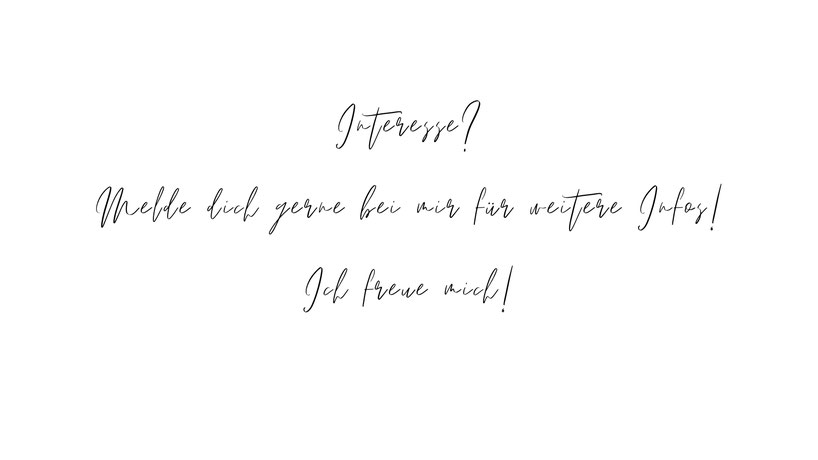 Interesse?
Melde dich gerne bei mir für weitere Infos!
Ich freue mich!